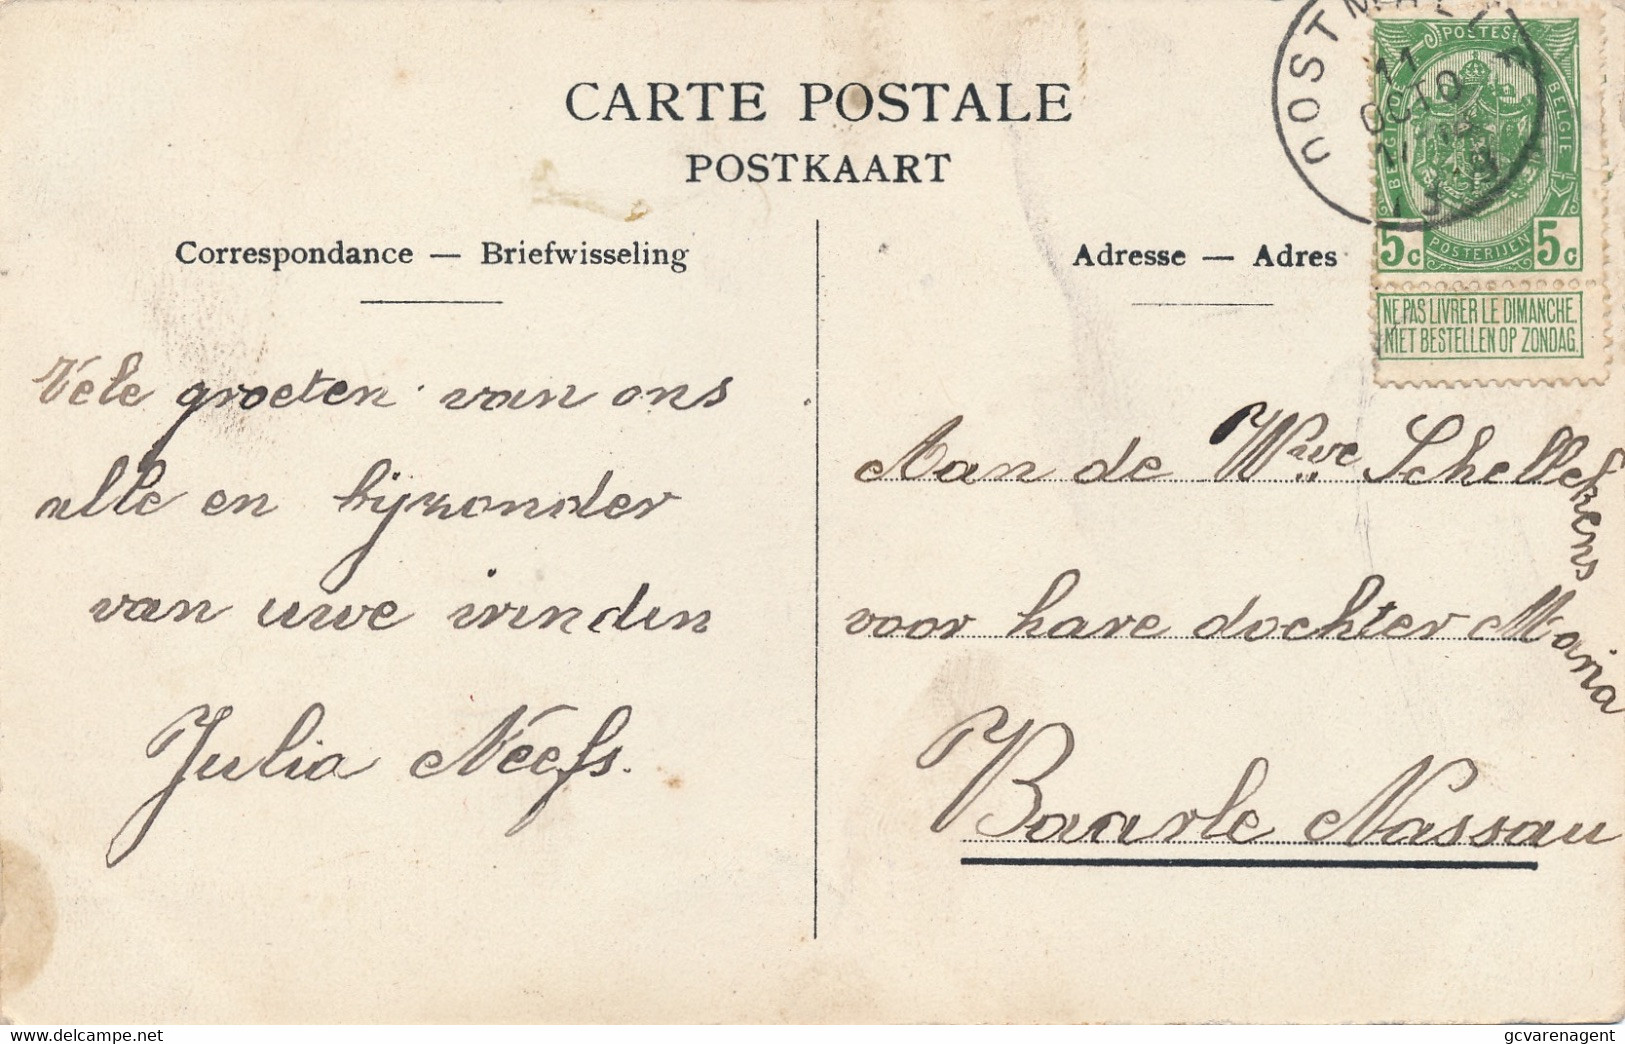 CARTE POSTALE
POSTKAART
Correspondance — Briefwisseling
Vele groeten van ons
alle en bijzonder
van uwe vrinden
Julia Neefs.
Adresse — Adres
Aan de Wwe Schellekens
voor hare dochter Maria
Baarle Nassau
OOSTMALLE
11
POSTES
BELGIQUE
BELGIE
POSTERIJEN
5c 5c
NE PAS LIVRER LE DIMANCHE.
NIET BESTELLEN OP ZONDAG.
www.delcampe.net
gcvarenagent